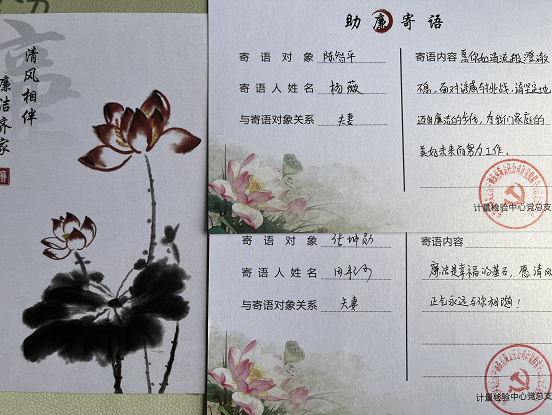 清风相伴
廉洁齐家
助廉寄语
寄语对象 陈智平
寄语人姓名 杨薇
与寄语对象关系 夫妻
寄语内容 愿你如清流般澄澈
不惑，面对诱惑与挑战，请坚定地
迈自廉洁的步伐，为我们家庭的
美好未来而努力工作。
计量检验中心党总支
寄语对象 张坤勋
寄语人姓名
与寄语对象关系 夫妻
寄语内容
廉洁是幸福的基石，愿清风
正气永远与你相随！
计量检验中心党总支